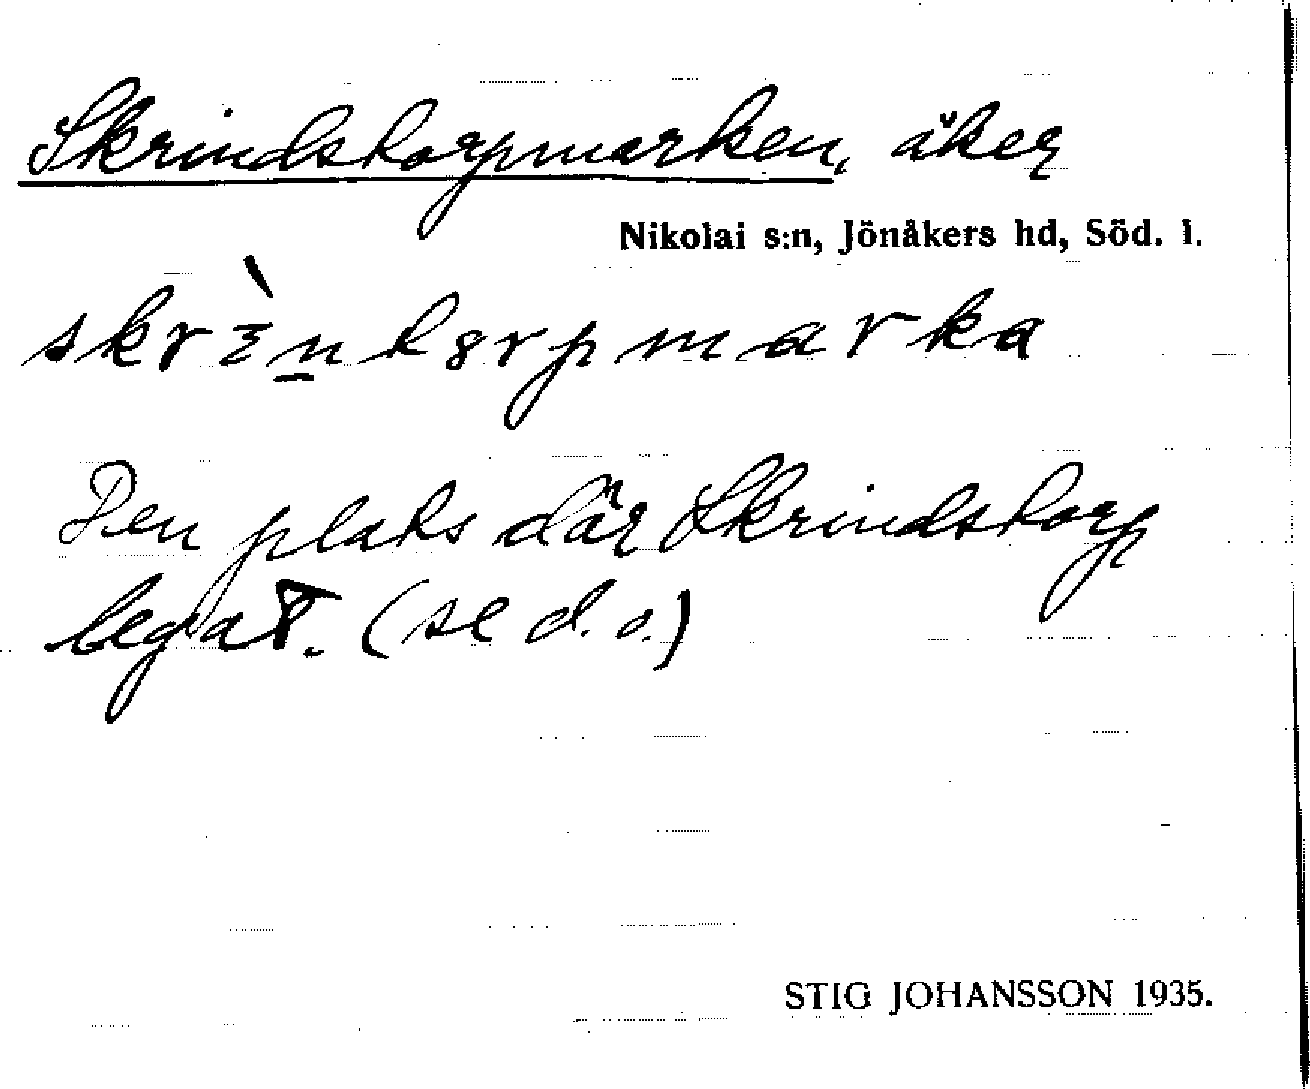 Skrindstorpmarken, åker
Nikolai s:n, Jönåkers hd, Söd. l.
Den plats där Skrindstorp
legat. (se d.o.)
STIG JOHANSSON 1935.